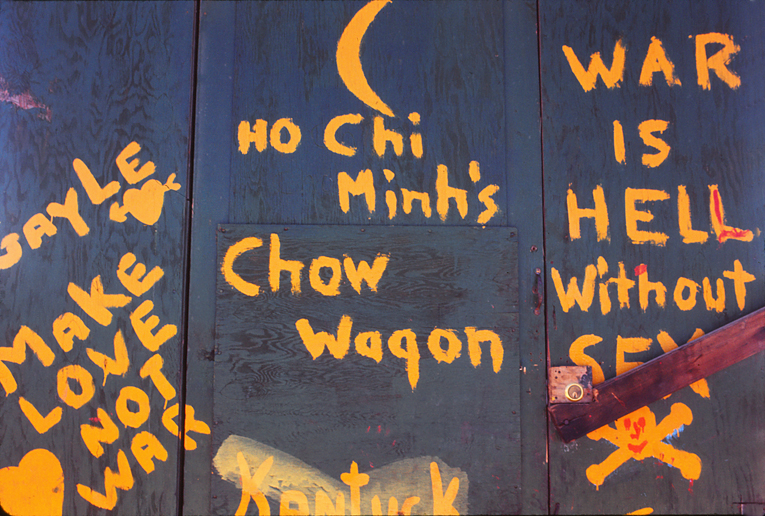 JAYLE
MAKE
LOVE
NOT
WAR
HO Chi
Minh's
Chow
Wagon
Kentuck
WAR
IS
HELL
Without
SEX